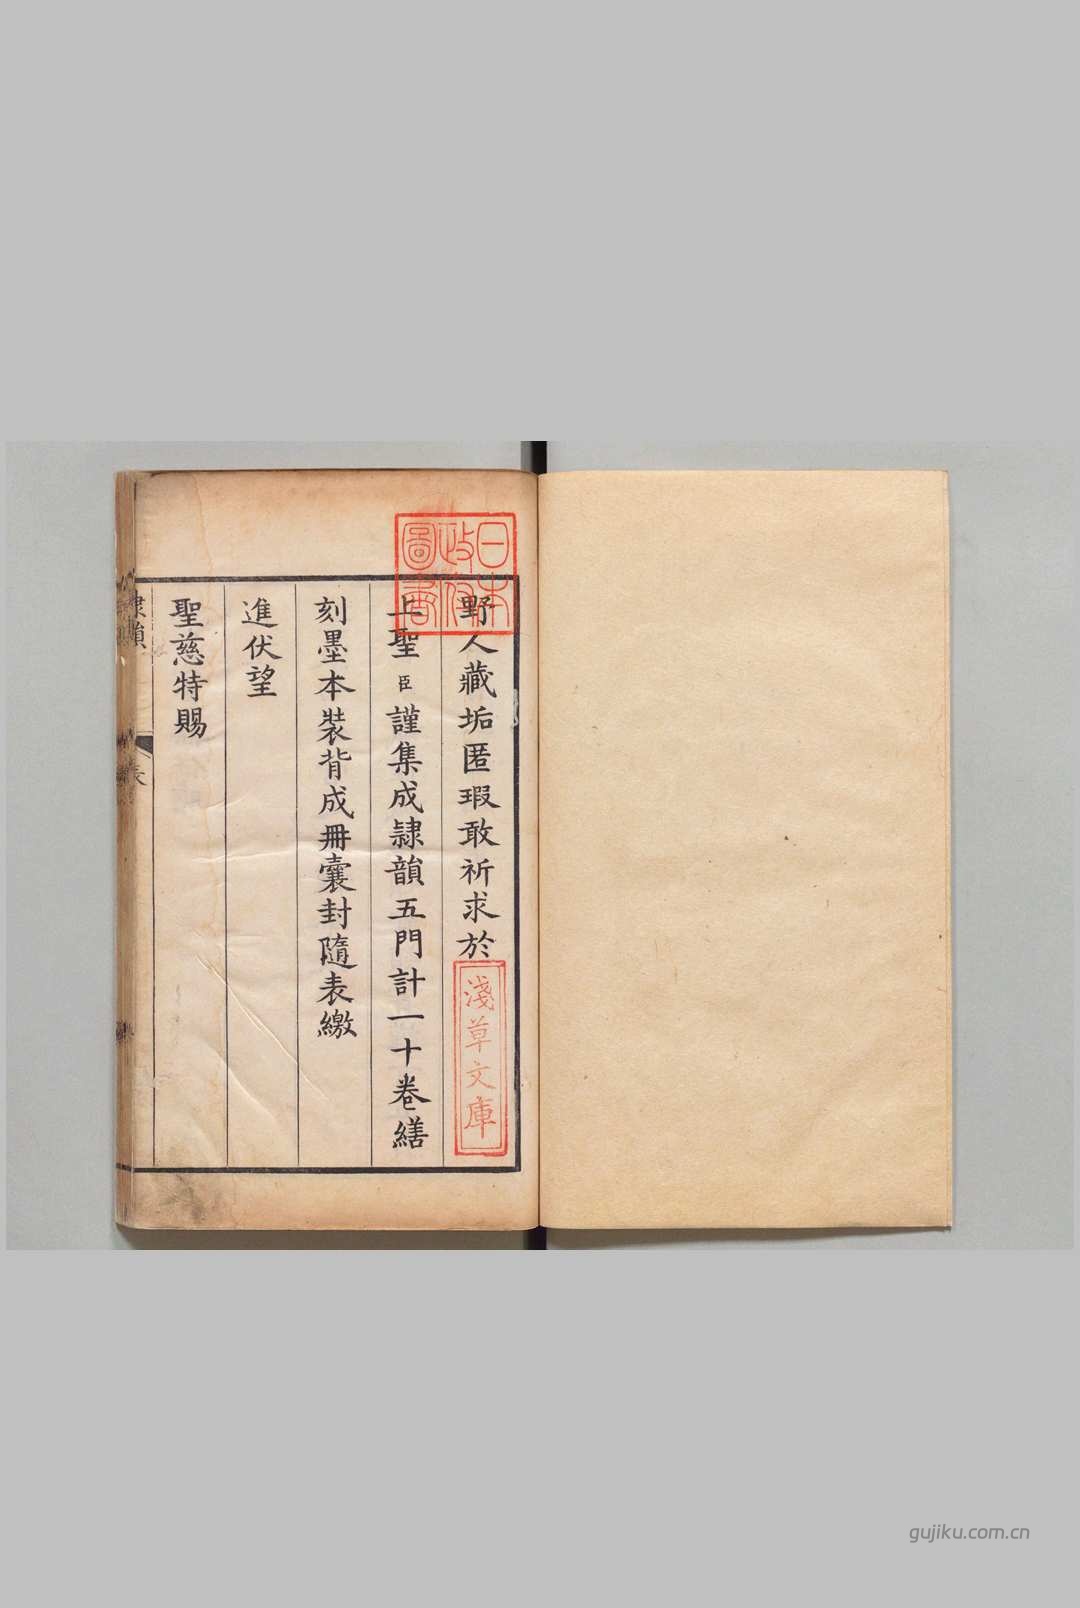 野人藏垢匿瑕敢祈求於
上聖臣謹集成隷韻五門計一十卷繕
刻墨本裝背成冊囊封隨表繳
進伏望
聖慈特賜
表
日本
政府
圖書
淺草文庫
gujiku.com.cn